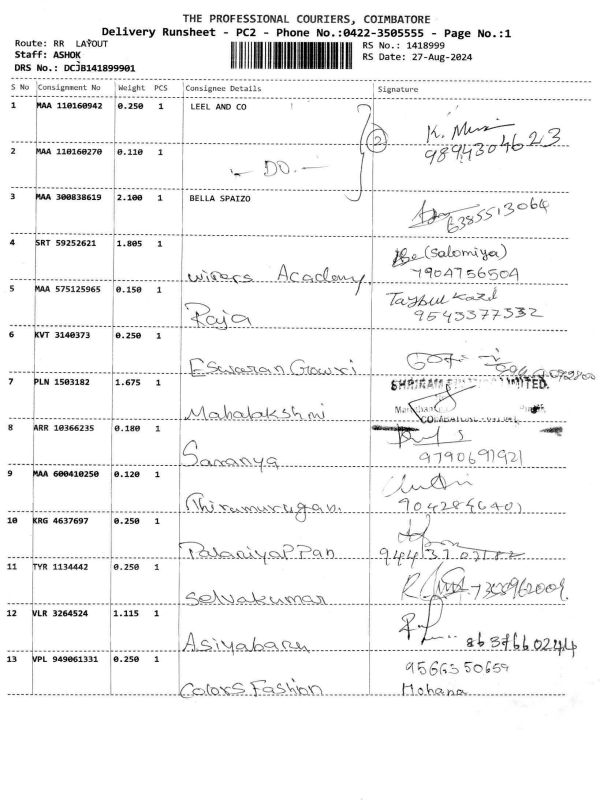 THE PROFESSIONAL COURIERS, COIMBATORE
Delivery Runsheet - PC2 - Phone No.:0422-3505555 - Page No.:1
Route: RR LAYOUT
RS No.: 1418999
Staff: ASHOK
RS Date: 27-Aug-2024
DRS No.: DCJB141899901
S No Consignment No Weight PCS Consignee Details Signature
1 MAA 110160942 0.250 1 LEEL AND CO K.
2 9894304623
2 MAA 110160270 0.110 1
- DO. -
3 MAA 300838619 2.100 1 BELLA SPAIZO
6385513064
4 SRT 59252621 1.805 1 (Salomiya)
wipers Academy 7904756504
5 MAA 575125965 0.150 1
Raja 9543377332
6 KVT 3140373 0.250 1
Eswaran Gowri
7 PLN 1503182 1.675 1 SHRIRAM LIMITED.
Mahalakshmi
8 ARR 10366235 0.180 1
Saranya 9790691921
9 MAA 600410250 0.120 1
Thirumurugan. 9042846401
10 KRG 4637697 0.250 1
Palaniyappan
11 TYR 1134442 0.250 1
Selvakumar
12 VLR 3264524 1.115 1
Asiyabanu 8637660244
13 VPL 949061331 0.250 1 9566350659
Colors Fashion Mohana